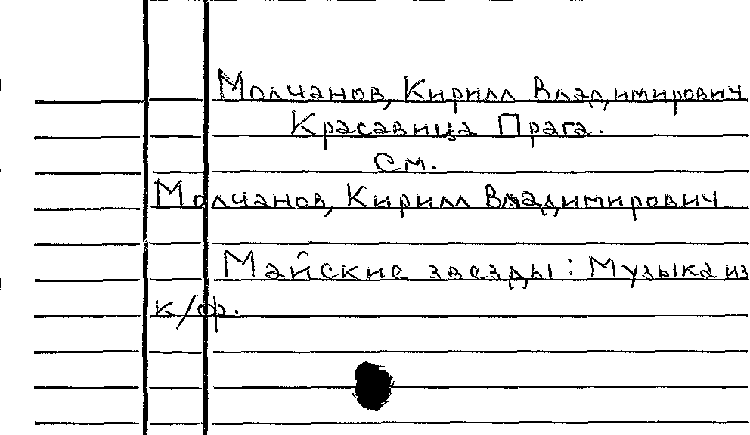 Молчанов, Кирилл Владимирович
Красавица Прага.
см.
Молчанов, Кирилл Владимирович
Майские звезды: Музыка из
к/ф.